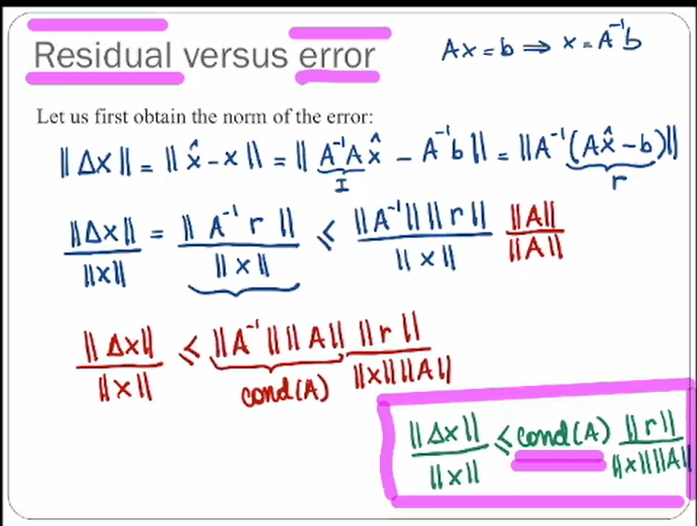 Residual versus error
Ax = b ⇒ x = A⁻¹b
Let us first obtain the norm of the error:
||Δx|| = ||x̂ - x|| = ||A⁻¹A x̂ - A⁻¹b|| = ||A⁻¹(Ax̂ - b)||
I
r
||Δx|| / ||x|| = ||A⁻¹ r|| / ||x|| ≤ ||A⁻¹|| ||r|| / ||x|| ||A|| / ||A||
||Δx|| / ||x|| ≤ ||A⁻¹|| ||A|| ||r|| / ||x|| ||A||
cond(A)
||Δx|| / ||x|| ≤ cond(A) ||r|| / ||x|| ||A||